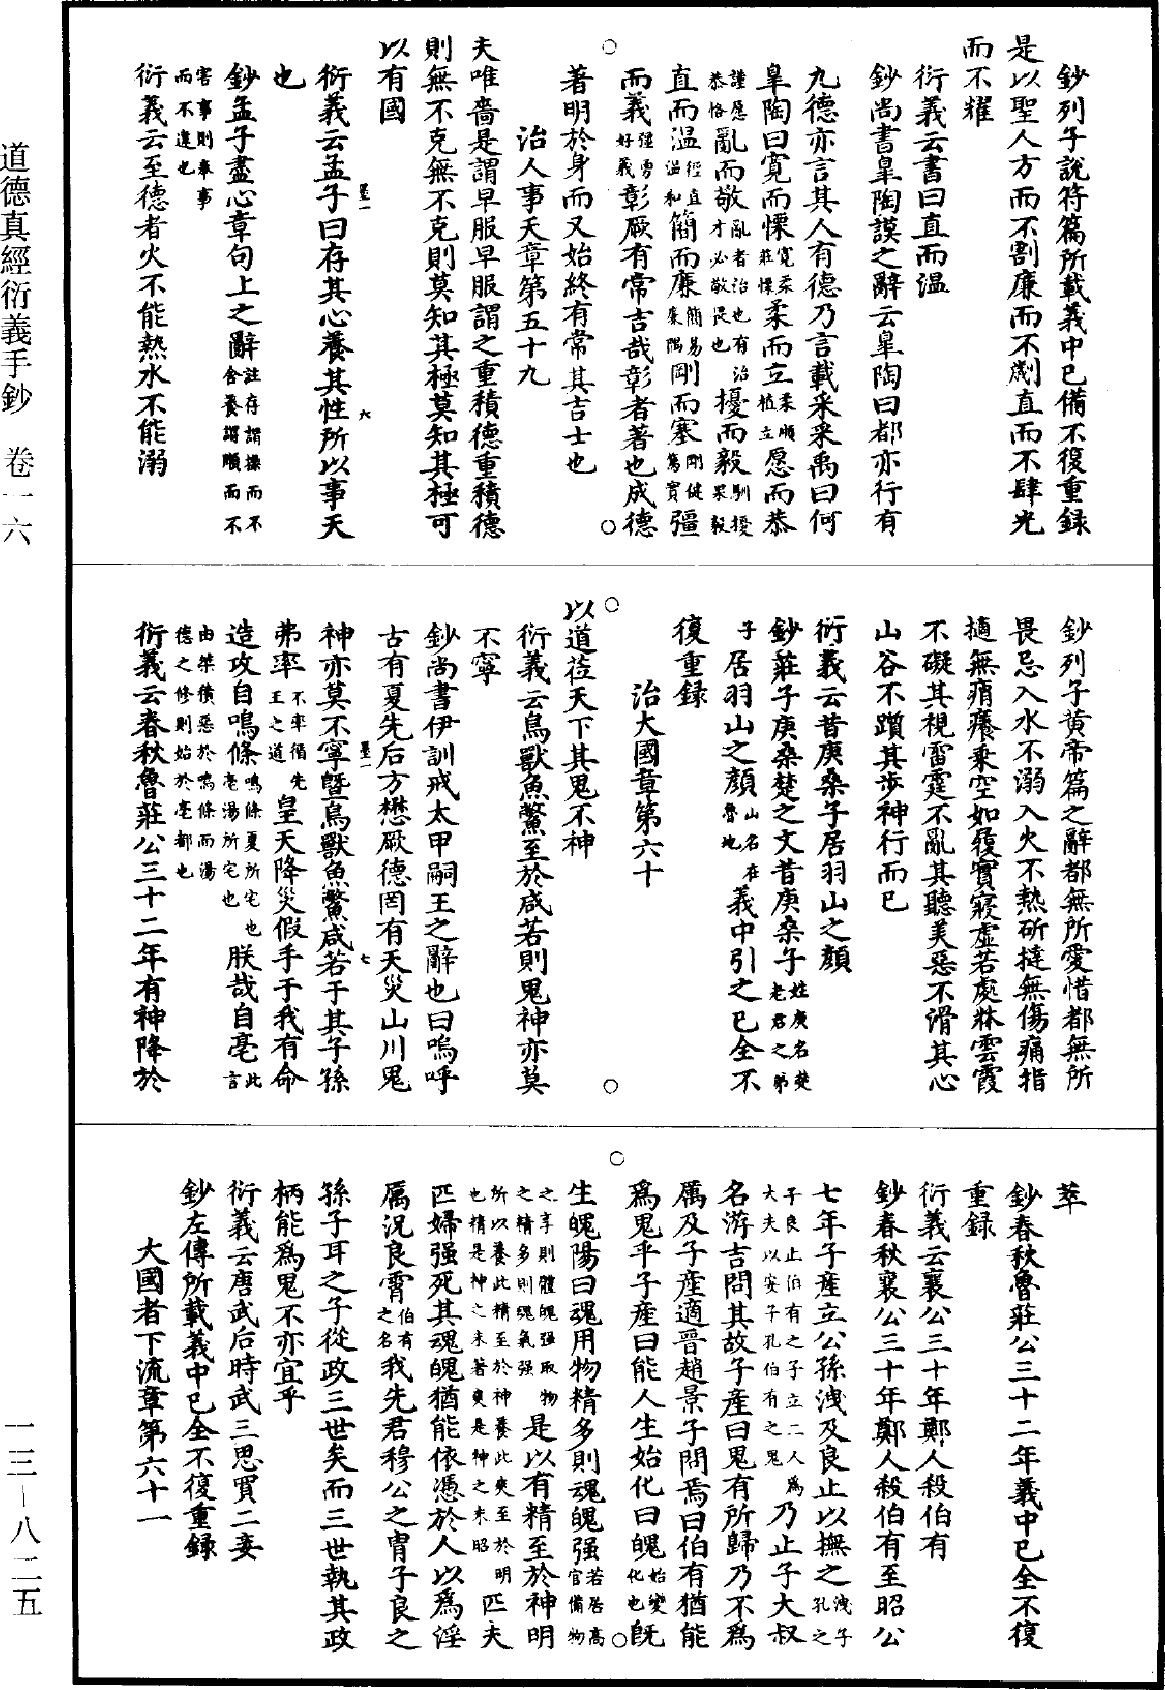 道德真經衍義手鈔 卷一六
一三—八二五
鈔列子說符篇所載義中已備不復重録
是以聖人方而不割廉而不劌直而不肆光
而不耀
衍義云書曰直而溫
鈔尚書臯陶謨之辭云臯陶曰都亦行有
九德亦言其人有德乃言載采采禹曰何
臯陶曰寬而慄寬柔莊慄柔而立柔順植立愿而恭
謹愿恭恪亂而敬亂者治也有治才必敬畏也擾而毅馴擾果毅
直而溫徑直溫和簡而廉簡易廉隅剛而塞剛健篤實彊
而義強勇好義彰厥有常吉哉彰者著也成德
著明於身而又始終有常其吉士也
治人事天章第五十九
夫唯嗇是謂早服早服謂之重積德重積德
則無不克無不克則莫知其極莫知其極可
以有國
衍義云孟子曰存其心養其性所以事天
也
鈔孟子盡心章句上之辭註存謂操而不舍養謂順而不
害事則奉事而不違也
衍義云至德者火不能熱水不能溺
鈔列子黄帝篇之辭都無所愛惜都無所
畏忌入水不溺入火不熱斫撻無傷痛指
擿無痟癢乘空如履實寢虛若處牀雲霞
不礙其視雷霆不亂其聽美惡不滑其心
山谷不躓其步神行而已
衍義云昔庚桑子居羽山之顏
鈔莊子庚桑楚之文昔庚桑子姓庚名楚老君之弟
子居羽山之顏山名在魯地義中引之已全不
復重録
治大國章第六十
以道莅天下其鬼不神
衍義云鳥獸魚鱉至於咸若則鬼神亦莫
不寧
鈔尚書伊訓戒太甲嗣王之辭也曰嗚呼
古有夏先后方懋厥德罔有天災山川鬼
神亦莫不寧暨鳥獸魚鱉咸若于其子孫
弗率不率循先王之道皇天降災假手于我有命
造攻自鳴條鳴條夏所宅也亳湯所宅也朕哉自亳此言
由桀積惡於鳴條而湯德之修則始於亳都也
衍義云春秋魯莊公三十二年有神降於
莘
鈔春秋魯莊公三十二年義中已全不復
重録
衍義云襄公三十年鄭人殺伯有
鈔春秋襄公三十年鄭人殺伯有至昭公
七年子産立公孫洩及良止以撫之洩子孔之
子良止伯有之子立二人爲大夫以安子孔伯有之鬼乃止子大叔
名游吉問其故子產曰鬼有所歸乃不爲
厲及子產適晉趙景子問焉曰伯有猶能
爲鬼乎子產曰能人生始化曰魄始變化也旣
生魄陽曰魂用物精多則魂魄强若居高官備物
之享則體魄强取物之精多則魂氣强是以有精至於神明
所以養此精至於神養此爽至於明也精是神之未著爽是神之未昭匹夫
匹婦强死其魂魄猶能依憑於人以爲淫
厲況良霄伯有之名我先君穆公之胄子良之
孫子耳之子從政三世矣而三世執其政
柄能爲鬼不亦宜乎
衍義云唐武后時武三思買二妾
鈔左傳所載義中已全不復重録
大國者下流章第六十一